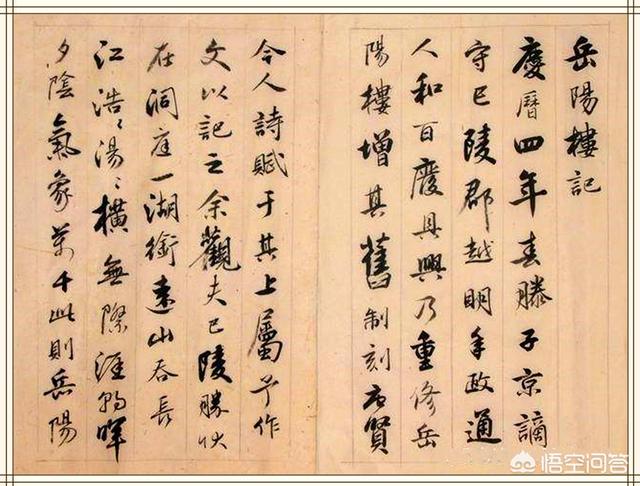 岳陽樓記
慶曆四年春滕子京謫
守巴陵郡越明年政通
人和百廢具興乃重修岳
陽樓增其舊制刻唐賢
今人詩賦于其上屬予作
文以記之余觀夫巴陵勝狀
在洞庭一湖銜遠山吞長
江浩〻湯〻橫無際涯朝暉
夕陰氣象萬千此則岳陽
悟空问答